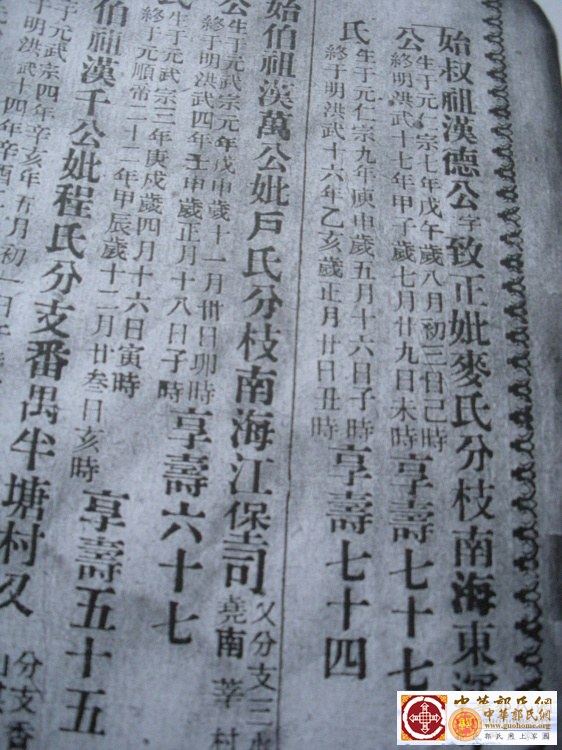 始叔祖漢德公字致正妣麥氏分枝南海東
公生于元仁宗七年戊午歲八月初三日己時
終明洪武十七年甲子歲七月廿九日木時享壽七十七
氏生于元仁宗九年庚申歲五月十六日子時
終于明洪武十六年乙亥歲正月廿日丑時享壽七十四
始伯祖漢萬公妣戶氏分枝南海江保司又分支二
堯南莘村
公生于元武宗元年戊申歲十一月卅日卯時
終于明洪武四年壬申歲正月十八日子時享壽六十七
氏生于元武宗三年庚戍歲四月十六日寅時
終于元順帝二十二年甲辰歲十二月廿叁日亥時享壽五十五
伯祖漢千公妣程氏分支番禺半塘村又分支香
生于元武宗四年辛亥年五月初一日
于明洪武十四年辛酉
中華郭氏網
www.guohome.org
郭氏網上家園